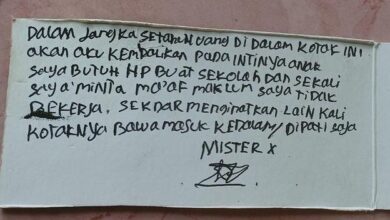 DALAM JANGKA SETAHUN UANG DI DALAM KOTAK INI
AKAN AKU KEMBALIKAN PADA INTINYA ANAK
SAYA BUTUH HP BUAT SEKOLAH DAN SEKALI
SAYA MINTA MA'AF MAKLUM SAYA TIDAK
BEKERJA. SEKDAR MENGINATKAN LAIN KALI
KOTAKNYA BAWA MASUK KEDALAM/DIPATI SAYA
MISTER X